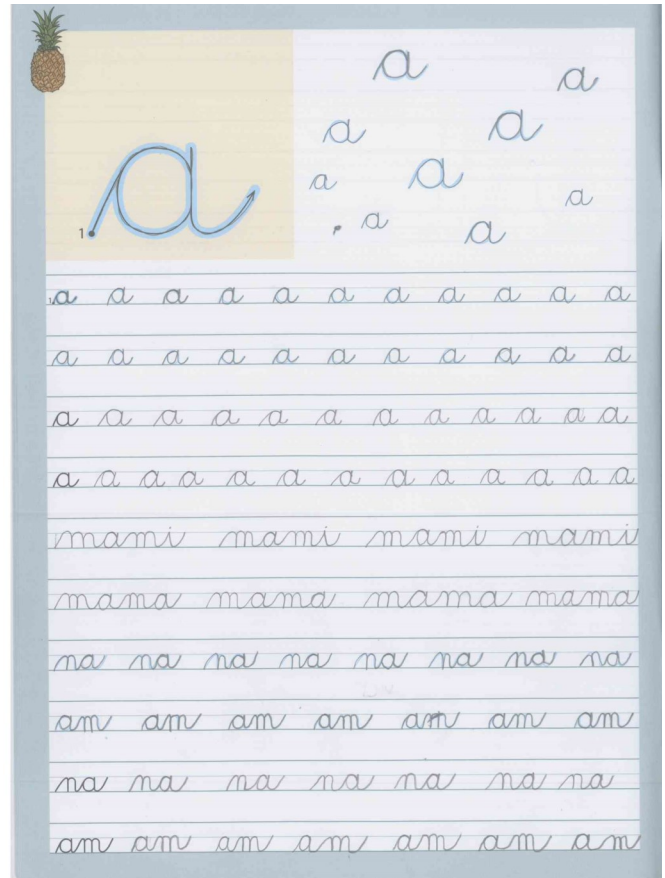 a
a
a a
a a
a a
1 a
a a
1 a a a a a a a a a a a
a a a a a a a a a a a
a a a a a a a a a a a a
a a a a a a a a a a a a a
mami mami mami mami
mama mama mama mama
na na na na na na na na
am am am am am am am
na na na na na na na
am am am am am am am